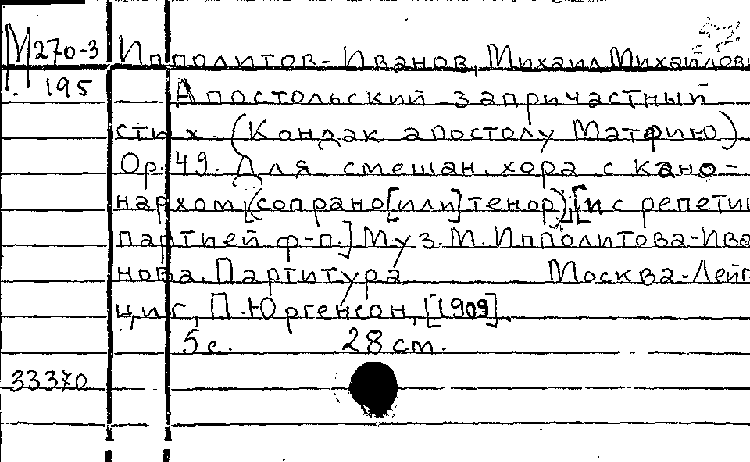 М270-3 Ипполитов-Иванов, Михаил Михайлови
195 Апостольский запричастный
стих. (Кондак апостолу Матфию).
Ор. 49. Для смешан. хора с кано-
нархом (сопрано [или] тенор), [и с репетиц
партией ф-п.] Муз. М. Ипполитова-Ива
нова. Партитура Москва-Лейп
циг, П. Юргенсон, [1909].
5 с. 28 см.
33370